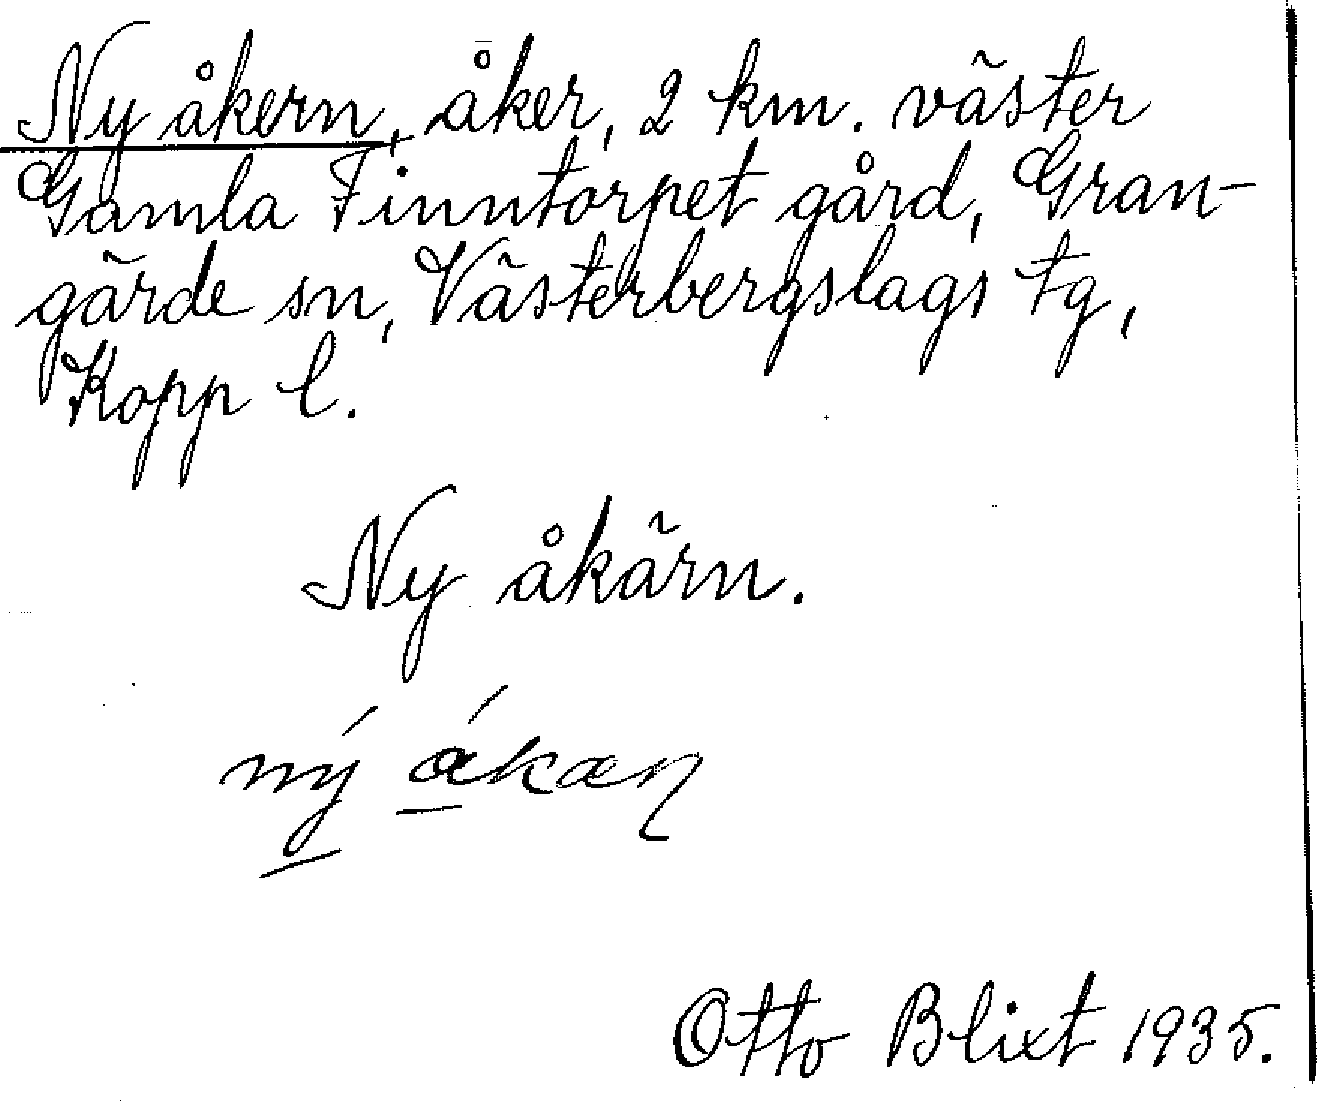 Ny åkern, åker, 2 km. väster
Gamla Finntorpet gård, Gran-
gärde sn, Västerbergslags tg,
Kopp l.
Ny åkärn.
ný ákæɳ
Otto Blixt 1935.